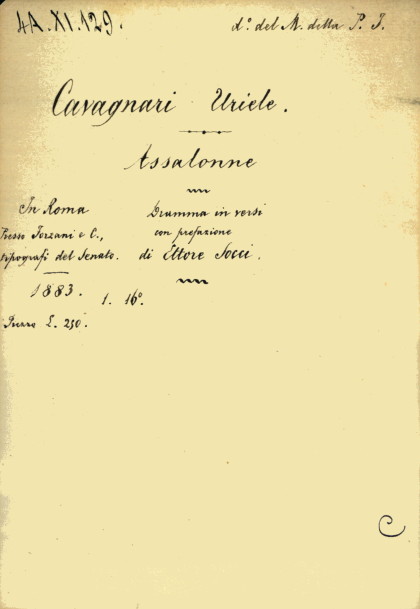 4A.XI.129.
d°. del M. della P. I.
Cavagnari Uriele.
Assalonne
In Roma
Presso Forzani e C.,
tipografi del Senato.
1883.
1. 16°.
Prezzo L. 2,50.
Dramma in versi
con prefazione
di Ettore Socci.
C